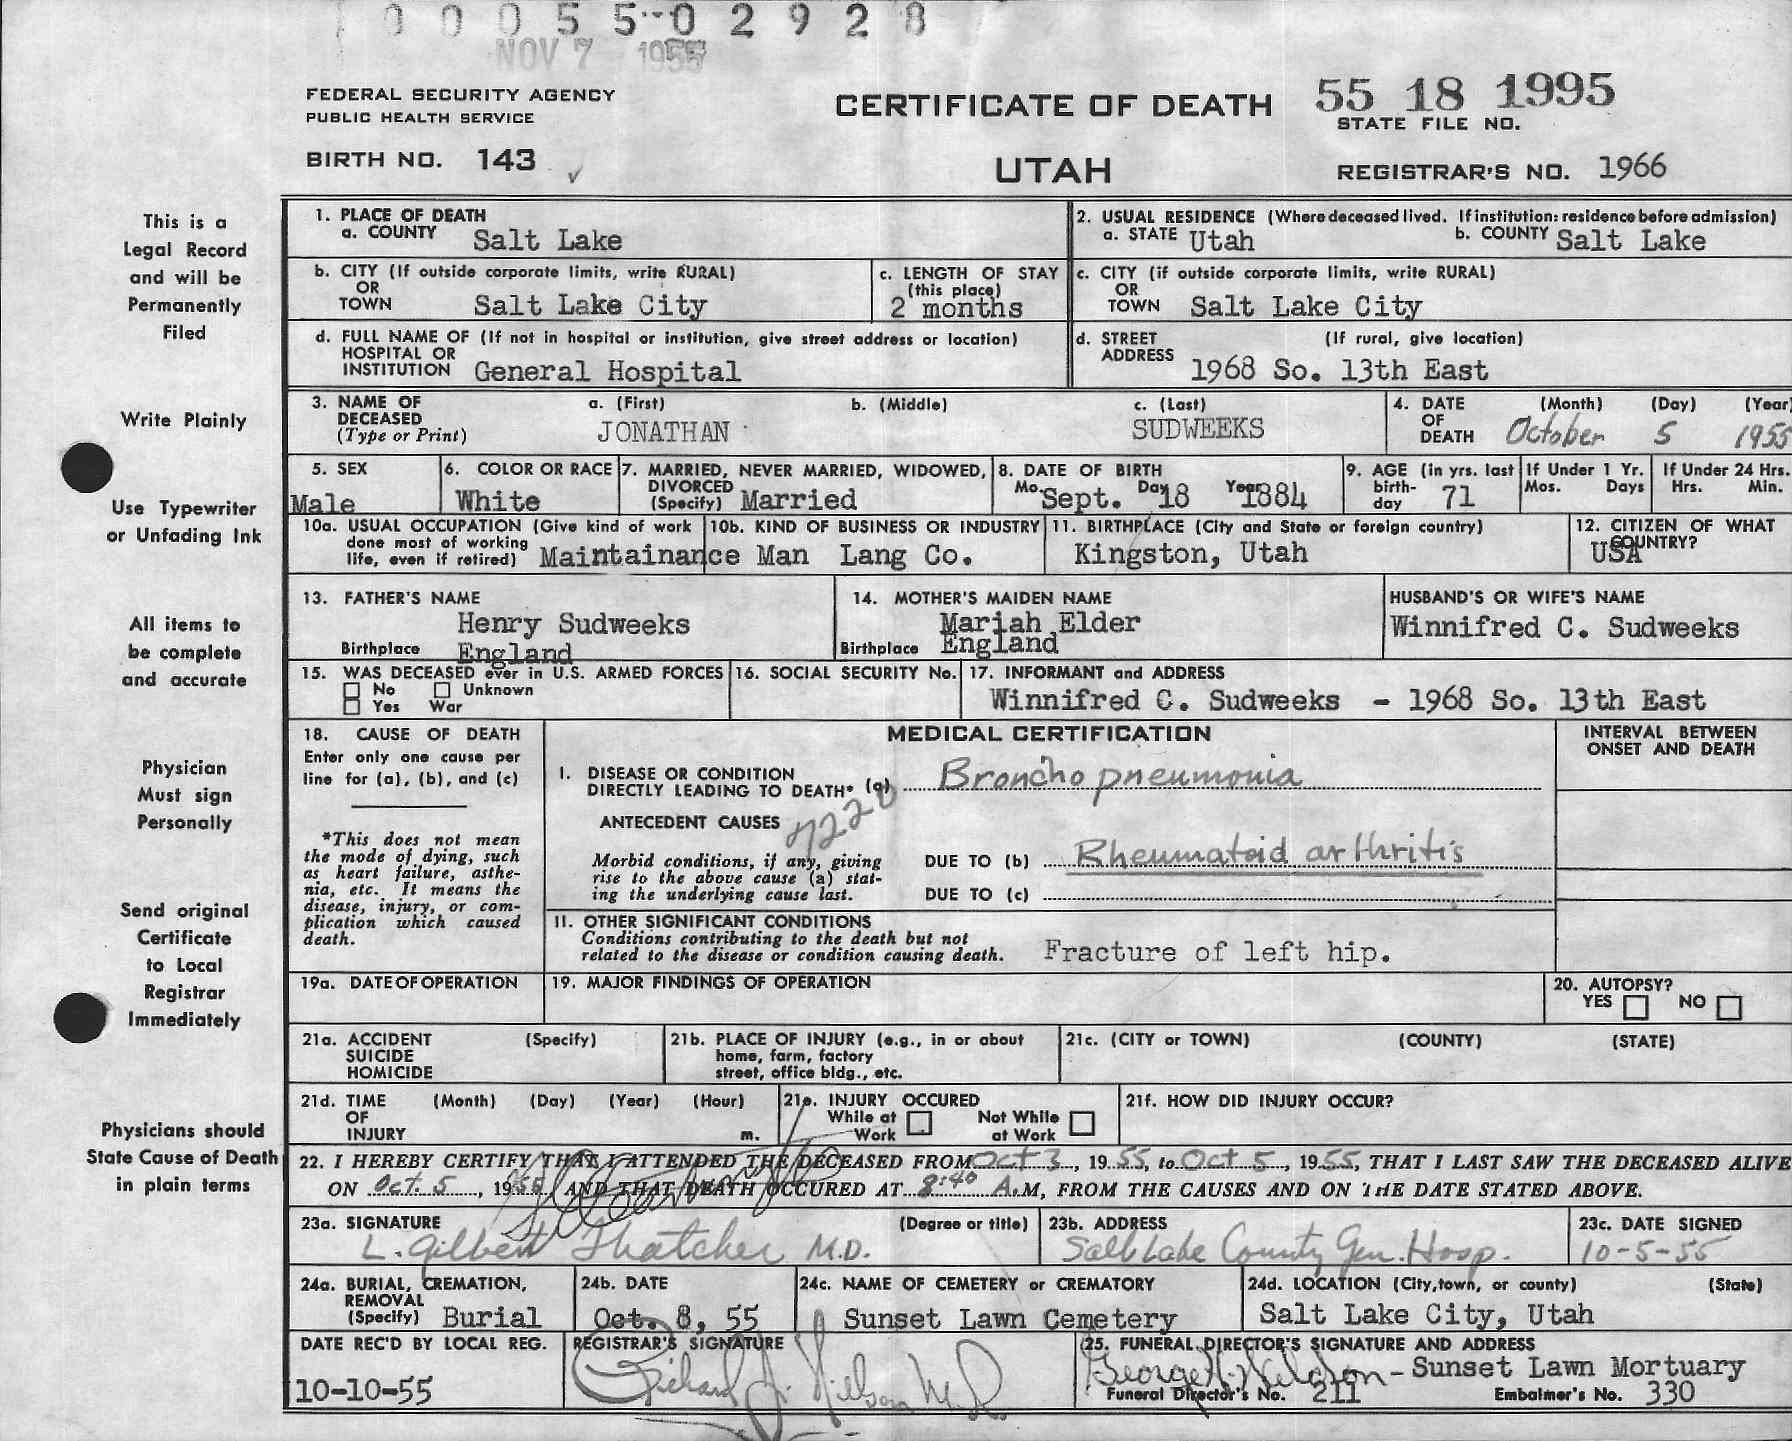 0 0 0 5 5 0 2 9 2 8
NOV 7 1955
FEDERAL SECURITY AGENCY
PUBLIC HEALTH SERVICE
BIRTH NO. 143
CERTIFICATE OF DEATH
UTAH
55 18 1995
STATE FILE NO.
REGISTRAR'S NO. 1966
This is a
Legal Record
and will be
Permanently
Filed
Write Plainly
Use Typewriter
or Unfading Ink
All items to
be complete
and accurate
Physician
Must sign
Personally
Send original
Certificate
to Local
Registrar
Immediately
Physicians should
State Cause of Death
in plain terms
1. PLACE OF DEATH
a. COUNTY Salt Lake
2. USUAL RESIDENCE (Where deceased lived. If institution: residence before admission)
a. STATE Utah b. COUNTY Salt Lake
b. CITY (If outside corporate limits, write RURAL)
OR
TOWN Salt Lake City
c. LENGTH OF STAY
(this place)
2 months
c. CITY (if outside corporate limits, write RURAL)
OR
TOWN Salt Lake City
d. FULL NAME OF (If not in hospital or institution, give street address or location)
HOSPITAL OR
INSTITUTION General Hospital
d. STREET (If rural, give location)
ADDRESS
1968 So. 13th East
3. NAME OF a. (First) b. (Middle) c. (Last)
DECEASED
(Type or Print) JONATHAN SUDWEEKS
4. DATE (Month) (Day) (Year)
OF
DEATH October 5 1955
5. SEX
Male
6. COLOR OR RACE
White
7. MARRIED, NEVER MARRIED, WIDOWED,
DIVORCED
(Specify) Married
8. DATE OF BIRTH
Mo. Sept. Day 18 Year 1884
9. AGE (in yrs. last
birth-
day 71
If Under 1 Yr.
Mos. Days
If Under 24 Hrs.
Hrs. Min.
10a. USUAL OCCUPATION (Give kind of work
done most of working
life, even if retired) Maintainance Man
10b. KIND OF BUSINESS OR INDUSTRY
Lang Co.
11. BIRTHPLACE (City and State or foreign country)
Kingston, Utah
12. CITIZEN OF WHAT
COUNTRY?
USA
13. FATHER'S NAME
Henry Sudweeks
Birthplace England
14. MOTHER'S MAIDEN NAME
Mariah Elder
Birthplace England
HUSBAND'S OR WIFE'S NAME
Winnifred C. Sudweeks
15. WAS DECEASED ever in U.S. ARMED FORCES
No Unknown
Yes War
16. SOCIAL SECURITY No.
17. INFORMANT and ADDRESS
Winnifred C. Sudweeks - 1968 So. 13th East
18. CAUSE OF DEATH
Enter only one cause per
line for (a), (b), and (c)
*This does not mean
the mode of dying, such
as heart failure, asthe-
nia, etc. It means the
disease, injury, or com-
plication which caused
death.
MEDICAL CERTIFICATION
INTERVAL BETWEEN
ONSET AND DEATH
I. DISEASE OR CONDITION
DIRECTLY LEADING TO DEATH* (a) Bronchopneumonia
ANTECEDENT CAUSES
Morbid conditions, if any, giving
rise to the above cause (a) stat-
ing the underlying cause last.
DUE TO (b) Rheumatoid arthritis
DUE TO (c)
II. OTHER SIGNIFICANT CONDITIONS
Conditions contributing to the death but not
related to the disease or condition causing death. Fracture of left hip.
19a. DATE OF OPERATION
19. MAJOR FINDINGS OF OPERATION
20. AUTOPSY?
YES NO
21a. ACCIDENT (Specify)
SUICIDE
HOMICIDE
21b. PLACE OF INJURY (e.g., in or about
home, farm, factory
street, office bldg., etc.
21c. (CITY or TOWN) (COUNTY) (STATE)
21d. TIME (Month) (Day) (Year) (Hour)
OF
INJURY m.
21e. INJURY OCCURED
While at Not While
Work at Work
21f. HOW DID INJURY OCCUR?
22. I HEREBY CERTIFY THAT I ATTENDED THE DECEASED FROM Oct 3, 1955, to Oct 5, 1955, THAT I LAST SAW THE DECEASED ALIVE
ON Oct. 5, 1955 AND THAT DEATH OCCURED AT 8:40 A.M, FROM THE CAUSES AND ON THE DATE STATED ABOVE.
23a. SIGNATURE (Degree or title)
L. Gilbert Thatcher M.D.
23b. ADDRESS
Salt Lake County Gen. Hosp.
23c. DATE SIGNED
10-5-55
24a. BURIAL, CREMATION,
REMOVAL
(Specify) Burial
24b. DATE
Oct. 8, 55
24c. NAME OF CEMETERY or CREMATORY
Sunset Lawn Cemetery
24d. LOCATION (City, town, or county) (State)
Salt Lake City, Utah
DATE REC'D BY LOCAL REG.
10-10-55
REGISTRAR'S SIGNATURE
Richard J. Nilson M.D.
25. FUNERAL DIRECTOR'S SIGNATURE AND ADDRESS
- Sunset Lawn Mortuary
Funeral Director's No. 211 Embalmer's No. 330